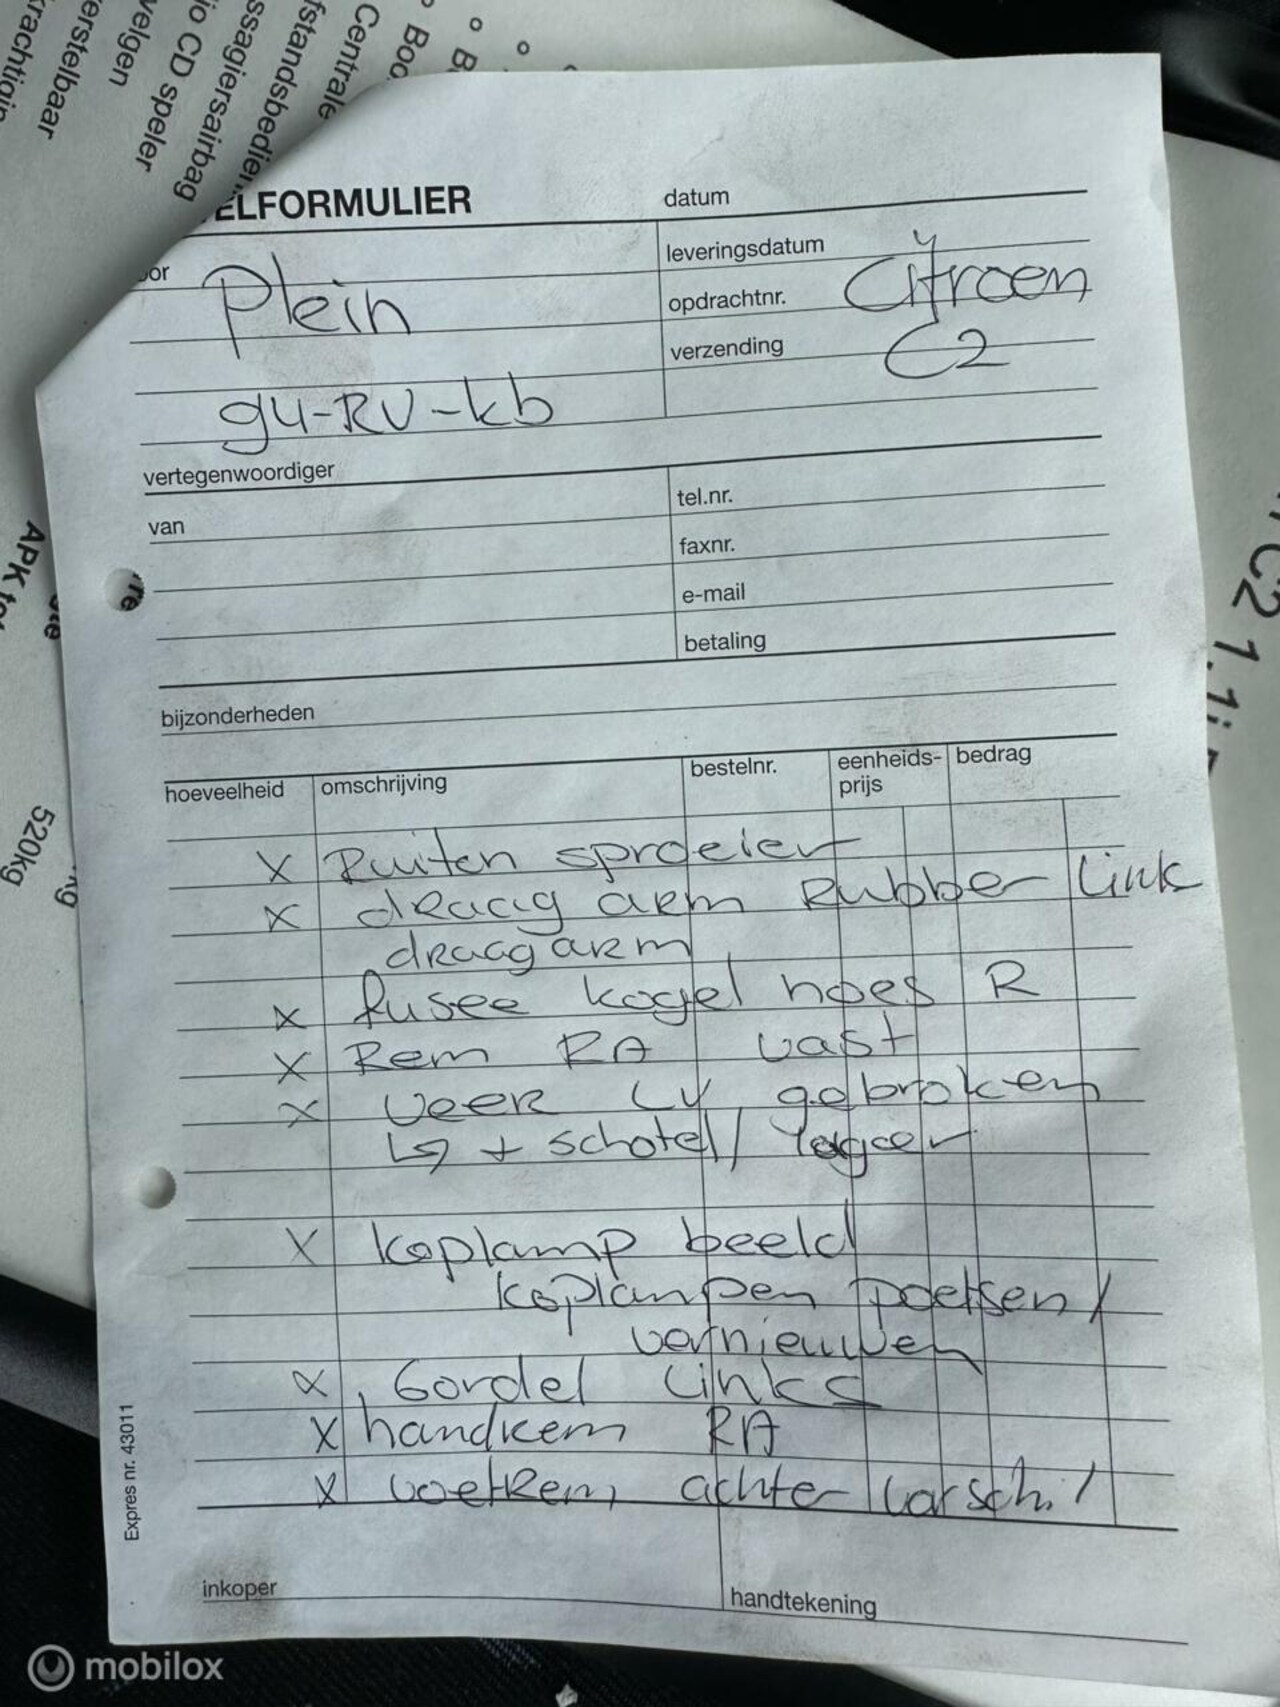 krachtigin
erstelbaar
velgen
io CD speler
ssagiersairbag
fstandsbedien
Centrale
Boo
B
ELFORMULIER
datum
oor
Plein
leveringsdatum
opdrachtnr.
Citroen
verzending
C2
94-RV-kb
vertegenwoordiger
van
tel.nr.
faxnr.
e-mail
betaling
bijzonderheden
hoeveelheid omschrijving bestelnr. eenheids-prijs bedrag
X Ruiten sproeier
X draag arm Rubber Link
draag arm
X fusee kogel hoes R
X Rem RA vast
X veer LV gebroken
↳ + schotel/
X koplamp beeld
koplampen poetsen/
vernieuwen
X Gordel Links
X handrem RA
X voetRem achter Varschil
inkoper
handtekening
Expres nr. 43011
APK
520kg
kg
C2 1.1i
mobilox